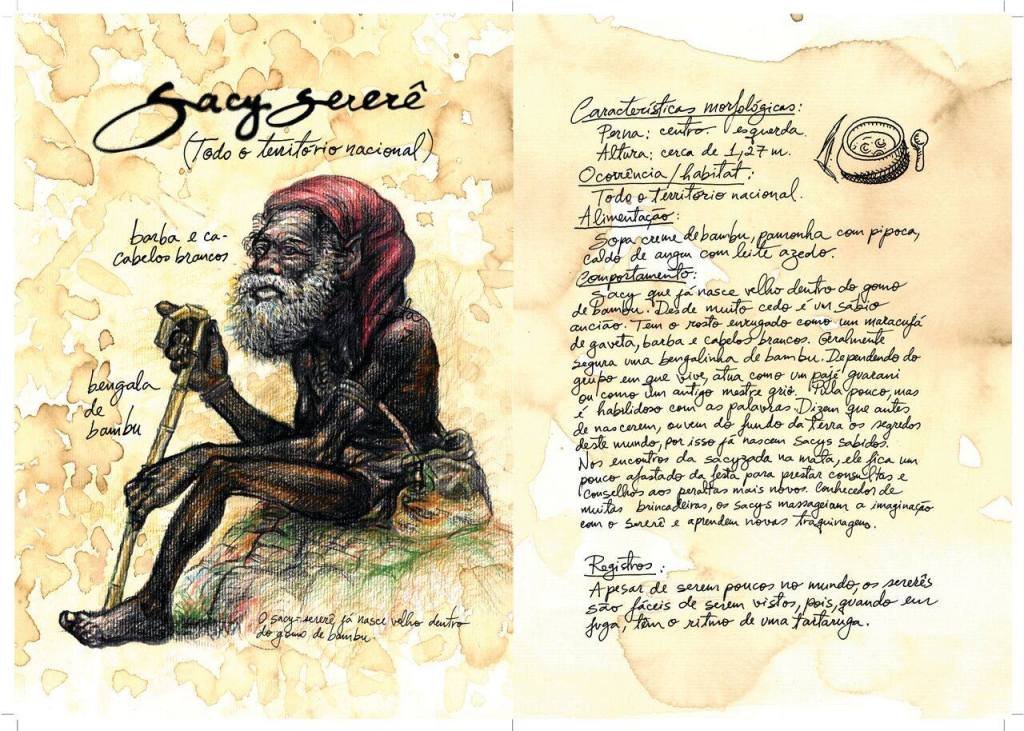 Sacy Sererê
(Todo o território nacional)
barba e ca-
cabelos brancos
bengala
de
bambu
O sacy-sererê já nasce velho dentro
do gomo de bambu.
Características morfológicas:
Perna: centro-esquerda.
Altura: cerca de 1,27 m.
Ocorrência/habitat:
Todo o território nacional.
Alimentação:
Sopa creme de bambu, pamonha com pipoca,
caldo de angu com leite azedo.
Comportamento:
Sacy que já nasce velho dentro do gomo
de bambu. Desde muito cedo é um sábio
ancião. Tem o rosto enrugado como um maracujá
de gaveta, barba e cabelos brancos. Geralmente
segura uma bengalinha de bambu. Dependendo do
grupo em que vive, atua como um pajé guarani
ou como um antigo mestre griô. Pula pouco, mas
é habilidoso com as palavras. Dizem que antes
de nascerem, ouvem do fundo da terra os segredos
deste mundo, por isso já nascem Sacys sabidos.
Nos encontros da sacyzada na mata, ele fica um
pouco afastado da festa para prestar consultas e
conselhos aos peraltas mais novos. Conhecedor de
muitas brincadeiras, os sacys massageiam a imaginação
com o Sererê e aprendem novas traquinagens.
Registros:
Apesar de serem poucos no mundo, os sererês
são fáceis de serem vistos, pois, quando em
fuga, têm o ritmo de uma tartaruga.